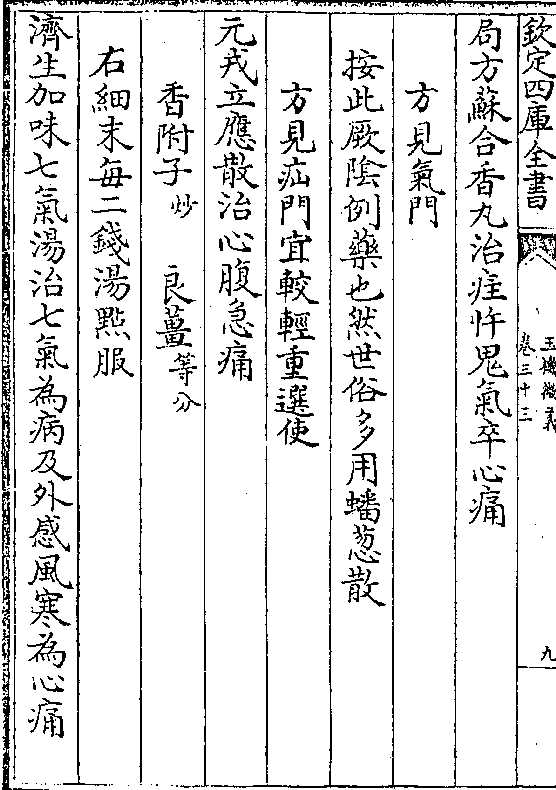 欽定四庫全書
玉機微義
卷三十三
九
局方蘇合香丸治疰忤鬼氣卒心痛
方見氣門
按此厥陰例藥也然世俗多用蟠葱散
方見疝門宜較輕重選使
元戎立應散治心腹急痛
香附子炒 良薑等分
右細末每二錢湯點服
濟生加味七氣湯治七氣為病及外感風寒為心痛